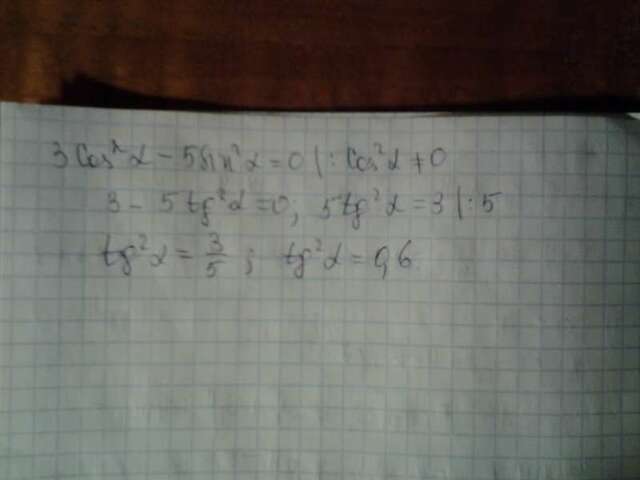 3cos²α - 5sin²α = 0 |: cos²α ≠ 0
3 - 5tg²α = 0; 5tg²α = 3 |: 5
tg²α = 3/5; tg²α = 0,6